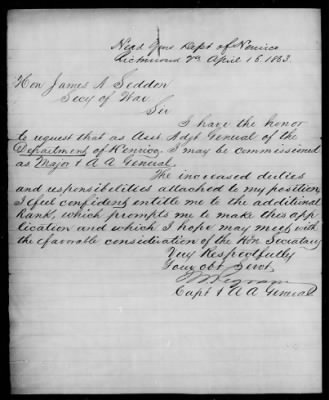 Head Qrs Dept of Henrico
Richmond Va April 15 1863.
Hon James A Seddon
Secy of War
Sir
I have the honor
to request that as Asst Adjt General of the
Department of Henrico, I may be commissioned
as Major & A A General.
The increased duties
and responsibilities attached to my position,
I feel confident entitle me to the additional
Rank, which prompts me to make this app
lication and which I hope may meet with
the favorable consideration of the Hon Secretary
Very Respectfully
Your obt Servt
Capt & A A General